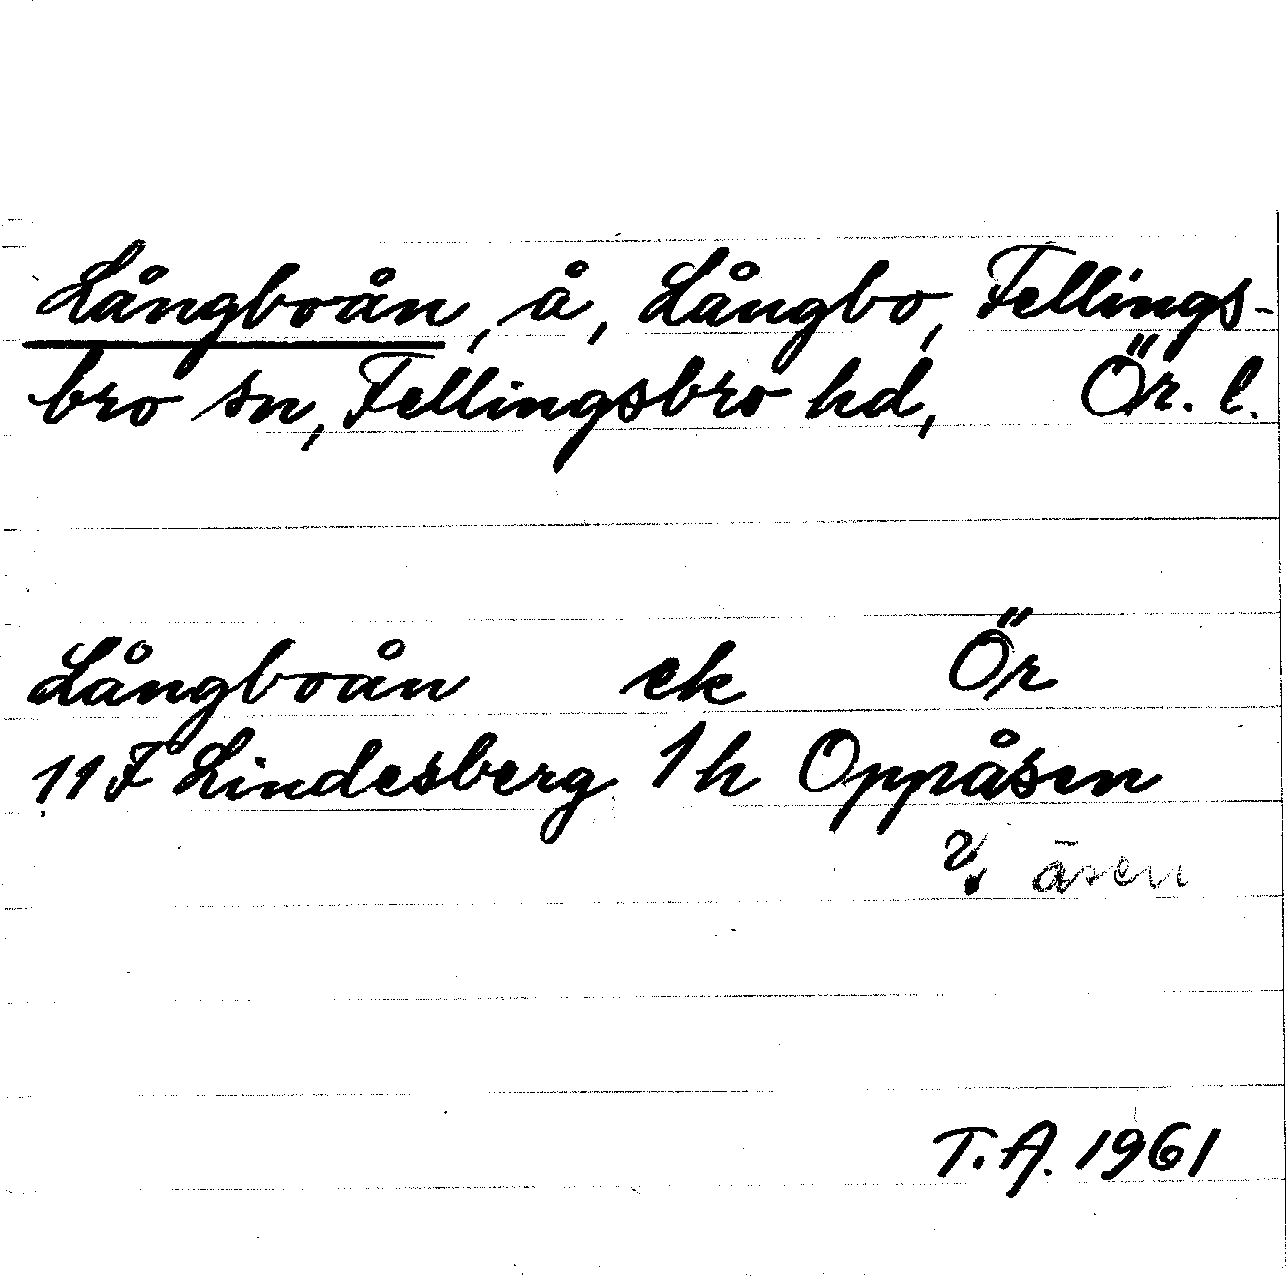 Långboån, å, Långbo, Fellings-
bro sn, Fellingsbro hd, Ör. l.
Långboån ek Ör
11F Lindesberg 1h Oppåsen
åsen
T.A. 1961